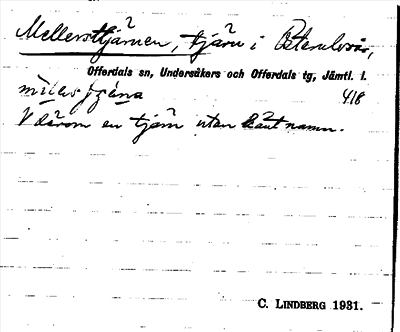 Mellersttjärnen, tjärn i
Offerdals sn, Undersåkers och Offerdals tg, Jämtl. l.
418
V därom en tjärn utan känt namn.
C. LINDBERG 1931.